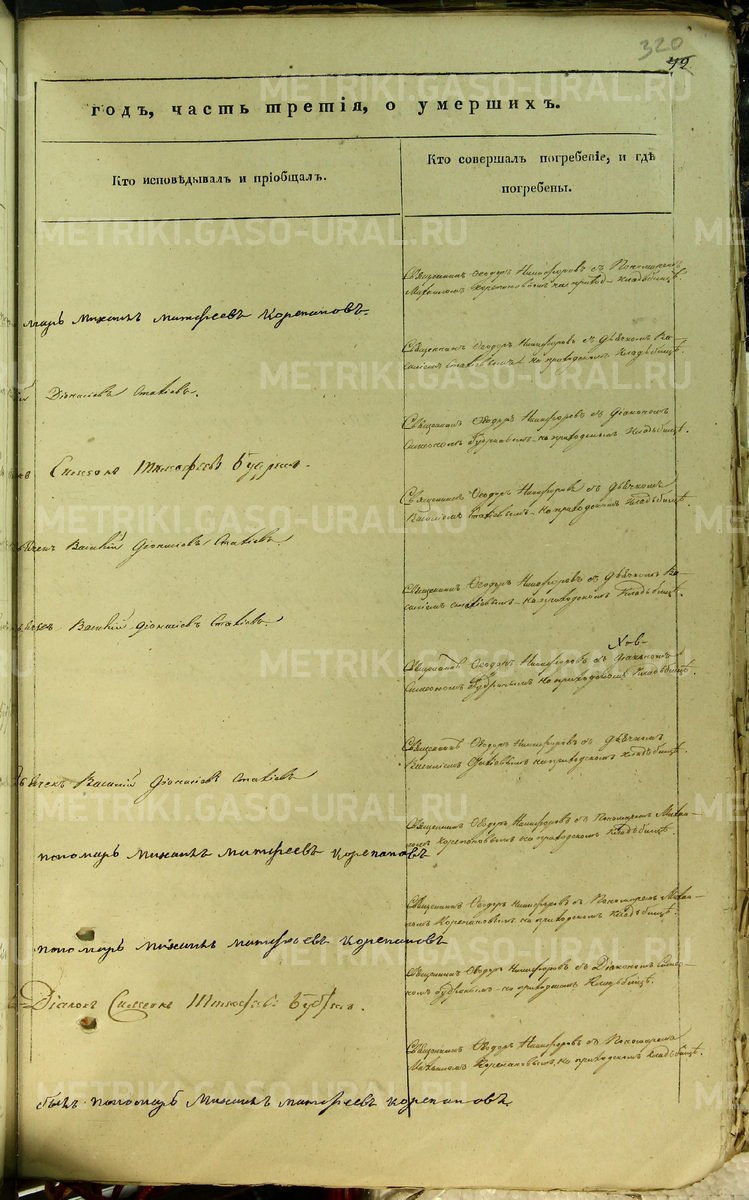 320
42
годъ, часть третія, о умершихъ.
Кто исповѣдывалъ и пріобщалъ.
Кто совершалъ погребеніе, и гдѣ
погребены.
Священникъ Ѳеодоръ Никифоровъ съ Пономаремъ
Михаиломъ Корепановымъ на приход- кладьбищѣ
марь Михаилъ Матфеевъ Корепановъ.
Священникъ Ѳеодоръ Никифоровъ съ дьячкомъ Ва-
силіемъ Стахіевымъ на приходскомъ кладьбищѣ.
Діонисіевъ Стахіевъ.
Священникъ Ѳеодоръ Никифоровъ съ діакономъ
Симеономъ на приходскомъ кладьбищѣ.
Симеонъ Тимофеевъ
Священникъ Ѳеодоръ Никифоровъ съ дьячкомъ
Василіемъ Стахіевымъ на приходскомъ кладьбищѣ
ячекъ Василій Діонисіевъ Стахіевъ
Священникъ Ѳеодоръ Никифоровъ съ дьячкомъ Ва-
силіемъ Стахіевымъ на приходскомъ кладьбищѣ.
Василій Діонисіевъ Стахіевъ.
Священникъ Ѳеодоръ Никифоровъ съ Діакономъ
Симеономъ на приходскомъ кладьбищѣ
Священникъ Ѳеодоръ Никифоровъ съ дьячкомъ
Василіемъ на приходскомъ кладьбищѣ
ячекъ Василій Діонисіевъ Стахіевъ
Священникъ Ѳеодоръ Никифоровъ съ Пономаремъ Миха-
иломъ Корепановымъ на приходскомъ кладьбищѣ.
пономарь Михаилъ Матфеевъ Корепановъ
Священникъ Ѳеодоръ Никифоровъ съ Пономаремъ Миха-
иломъ Корепановымъ на приходскомъ кладьбищѣ.
пономарь Михаилъ Матфеевъ Корепановъ
Священникъ Ѳеодоръ Никифоровъ съ Діакономъ Симео-
номъ на приходскомъ кладьбищѣ.
Діаконъ Симеонъ Тимофеевъ
Священникъ Ѳеодоръ Никифоровъ съ Пономаремъ
Михаиломъ Корепановымъ на приходскомъ кладьбищѣ.
былъ пономарь Михаилъ Матфеевъ Корепановъ.
METRIKI.GASO-URAL.RU